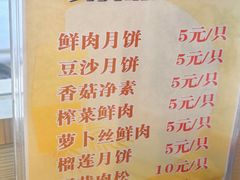 鲜肉月饼 5元/只
豆沙月饼 5元/只
香菇净素 5元/只
榨菜鲜肉 5元/只
萝卜丝鲜肉 5元/只
榴莲月饼 10元/只
肉松